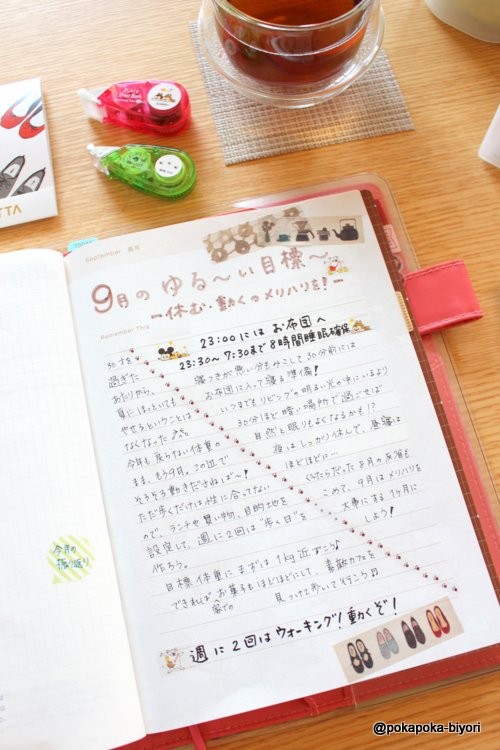 September 長月
9月の ゆる〜い 目標〜
ー休む・動くのメリハリを!ー
Remember This
23:00には お布団へ
23:30〜7:30まで 8時間睡眠確保
寝つきが悪い分もみこして30分前には
お布団に入って寝る準備!
いつまでもリビングの明るい光の中にいるより
30分ほど暗い場所で過ごせば
自然と眠りもよくなるかも!?
夜はしっかり休んで、昼寝は
ほどほどに…
ぐうたらだった8月の反省も
こめて、9月はメリハリを
大事にする1ヶ月に
しよう!
30才を
過ぎた
あたりから、
夏にほっといても
やせるということは
なくなった
今年も戻らない体重の
まま、もう9月。この辺で
そろそろ動きださねば〜!
ただ歩くだけは性に合ってない
ので、ランチや買い物、目的地を
設定して、週に2回は“歩く日”を
作ろう。
目標体重にまずは1kg近づこう♪
できれば 家での お菓子もほどほどにして、素敵カフェを
見つけて歩いて行こう♫
週に2回はウォーキング!動くぞ!
今月の
振り返り
TTA
@pokapoka-biyori